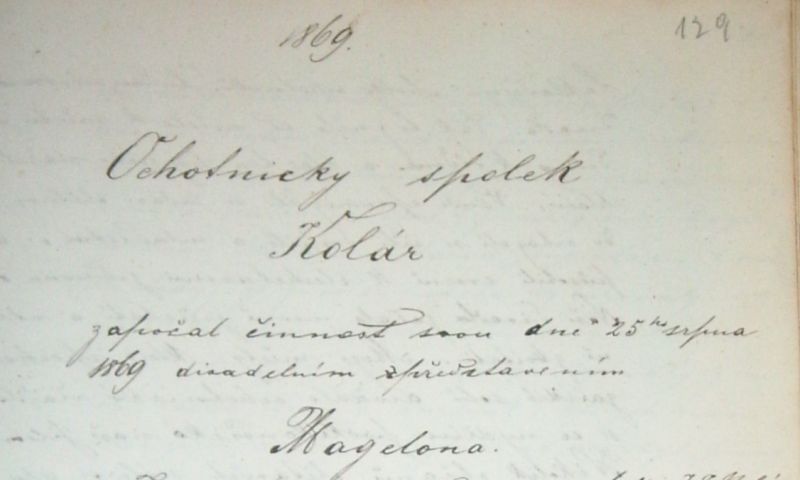 1869.
129
Ochotnicky spolek
Kolár
započal činnost svou dne 25ho srpna
1869 divadelním představením
Magelona.